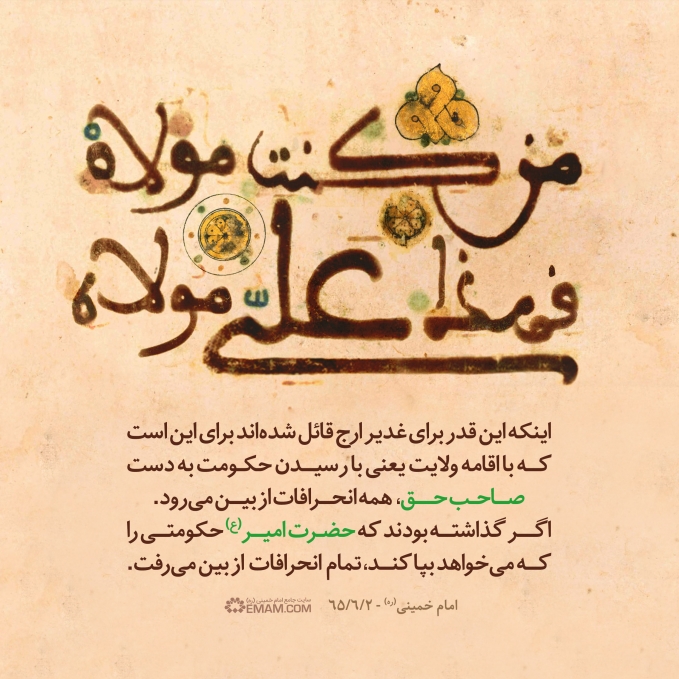 من كنت مولاه
فهذا علىّ مولاه
اینکه این قدر برای غدیر ارج قائل شده‌اند برای این است
که با اقامه ولایت یعنی با رسیدن حکومت به دست
صاحب حق، همه انحرافات از بین می‌رود.
اگر گذاشته بودند که حضرت امیر(ع) حکومتی را
که می‌خواهد بپا کند، تمام انحرافات از بین می‌رفت.
امام خمینی(ره) - ۶۵/۶/۲
سایت جامع امام خمینی (ره)
EMAM.COM